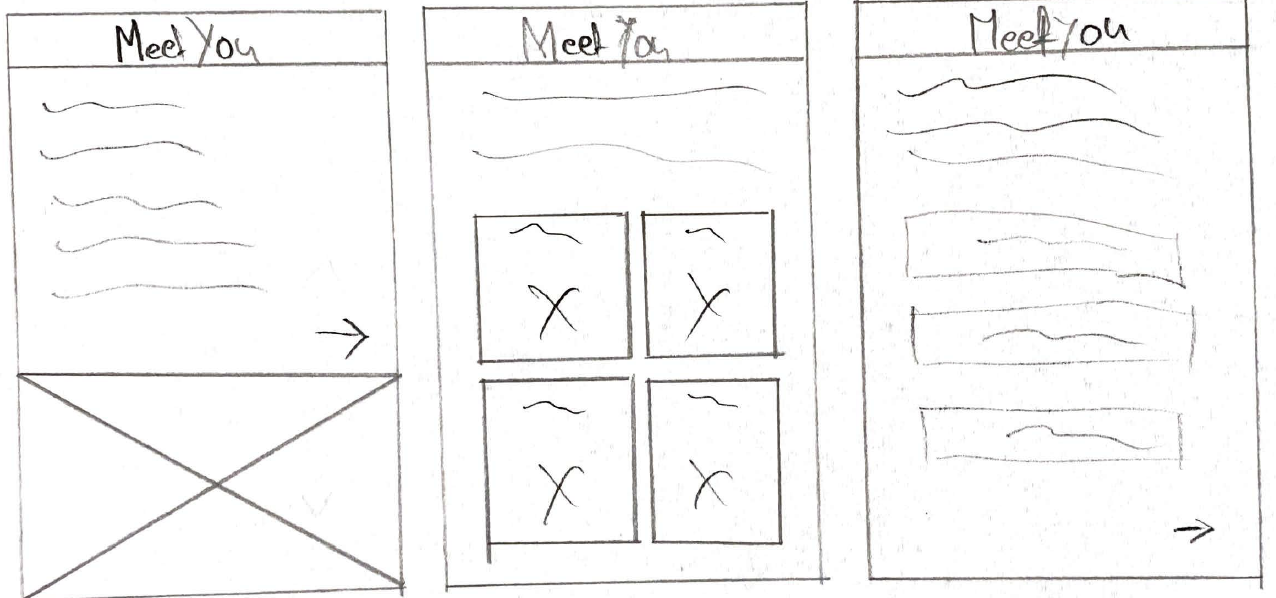 Meet You
Meet You
Meet You